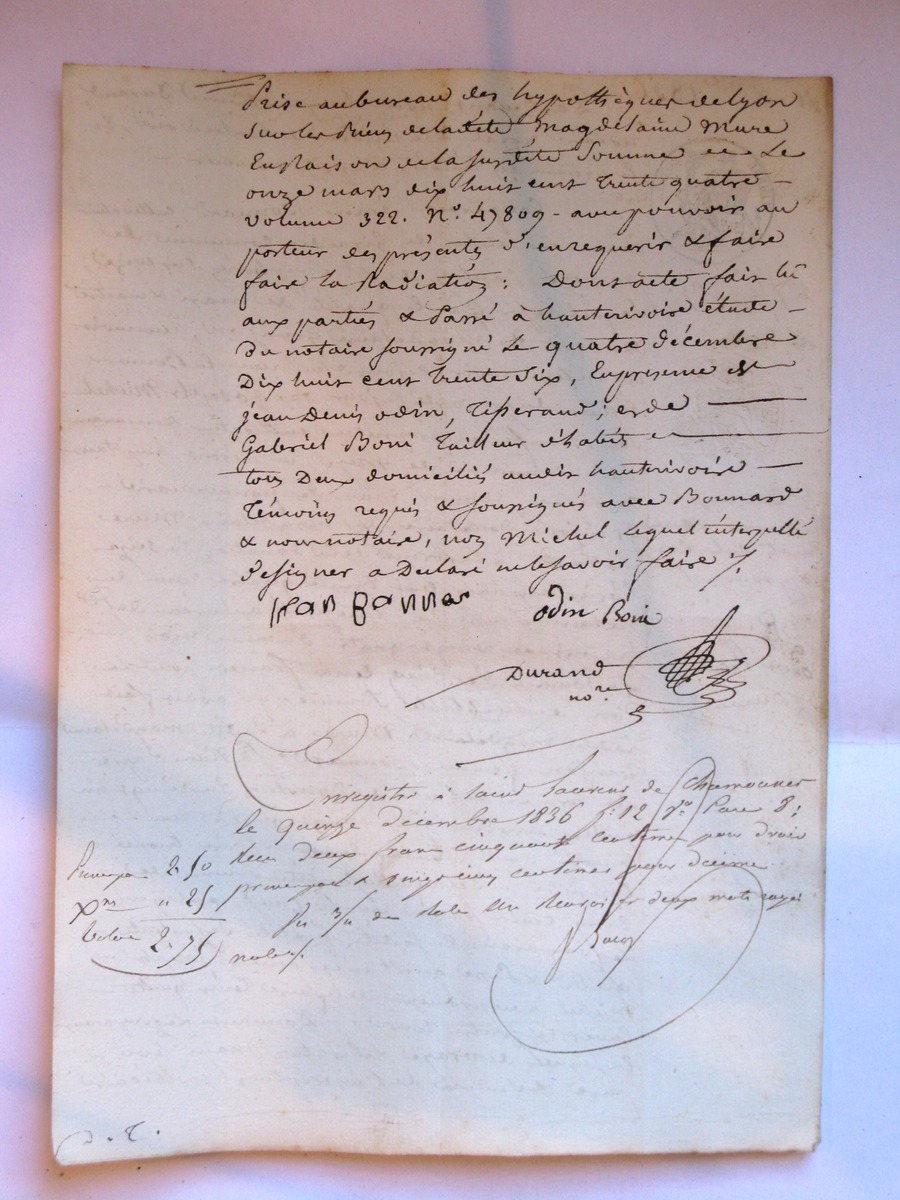 Prise au bureau des hypothèques de Lyon
sur les Biens de la dété Magdelaine Mure
En Raison de la susdite Somme ee Le
onze mars dix huit cent Trente quatre –
volume 322. N.º 47809 – avec pouvoir au
porteur des présentes d'en requerir & faire
faire la Radiation: Dont acte fait lu
aux parties & Passé à hauterivoire étude –
Du notaire soussigné Le quatre décembre
Dix huit cent Trente Six, En présence de
jean Denis odin, Tisserand; et de
Gabriel Boni Tailleur d'habits
tous Deux domiciliés audit hauterivoire –
Témoins requis & soussignés avec Bonnard
& nous notaire, non Michel Lequel interpellé
de signer a Déclaré ne le savoir faire /.
odin Boni
Durand
no.re
Enregistré à Saint Laurent de Chamousset
le quinze décembre 1836 f.º 12 Vº Case 8;
Reçu deux francs cinquante centimes pour droit
Principal 2.50
principal & vingt cinq centimes pour décime
Xme " 25
deux mots rayés
Total 2.75
nuls /.